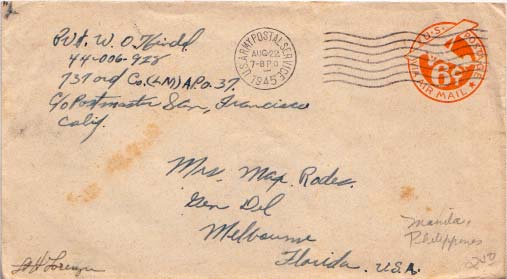 Pvt. W. O. Hirdel
44-006-928
737 Ord Co. (LM) A.P.O. 37.
C/o Postmaster San, Francisco
Calif.
U.S. ARMY POSTAL SERVICE
AUG 22
7-8 PM
1945
U.S. POSTAGE
6¢
VIA AIR MAIL
Mrs. Map Rodes.
Gen Del
Melbourne
Florida. U.S.A.
Manila,
Philippines